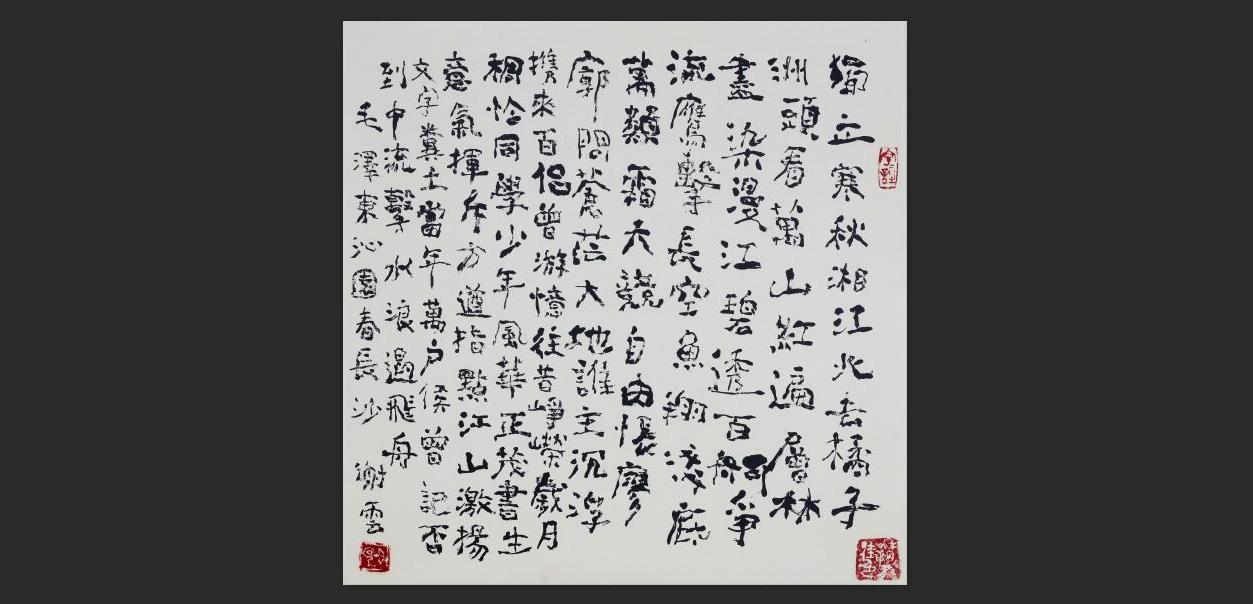 獨立寒秋湘江北去橘子
洲頭看萬山紅遍層林
盡染漫江碧透百舸爭
流鷹擊長空魚翔淺底
萬類霜天競自由悵廖
廓問蒼茫大地誰主沉浮
携來百侶曾游憶往昔崢嶸歲月
稠恰同學少年風華正茂書生
意氣揮斥方遒指點江山激揚
文字糞土當年萬户侯曾記否
到中流擊水浪遏飛舟
毛澤東沁園春長沙 謝雲